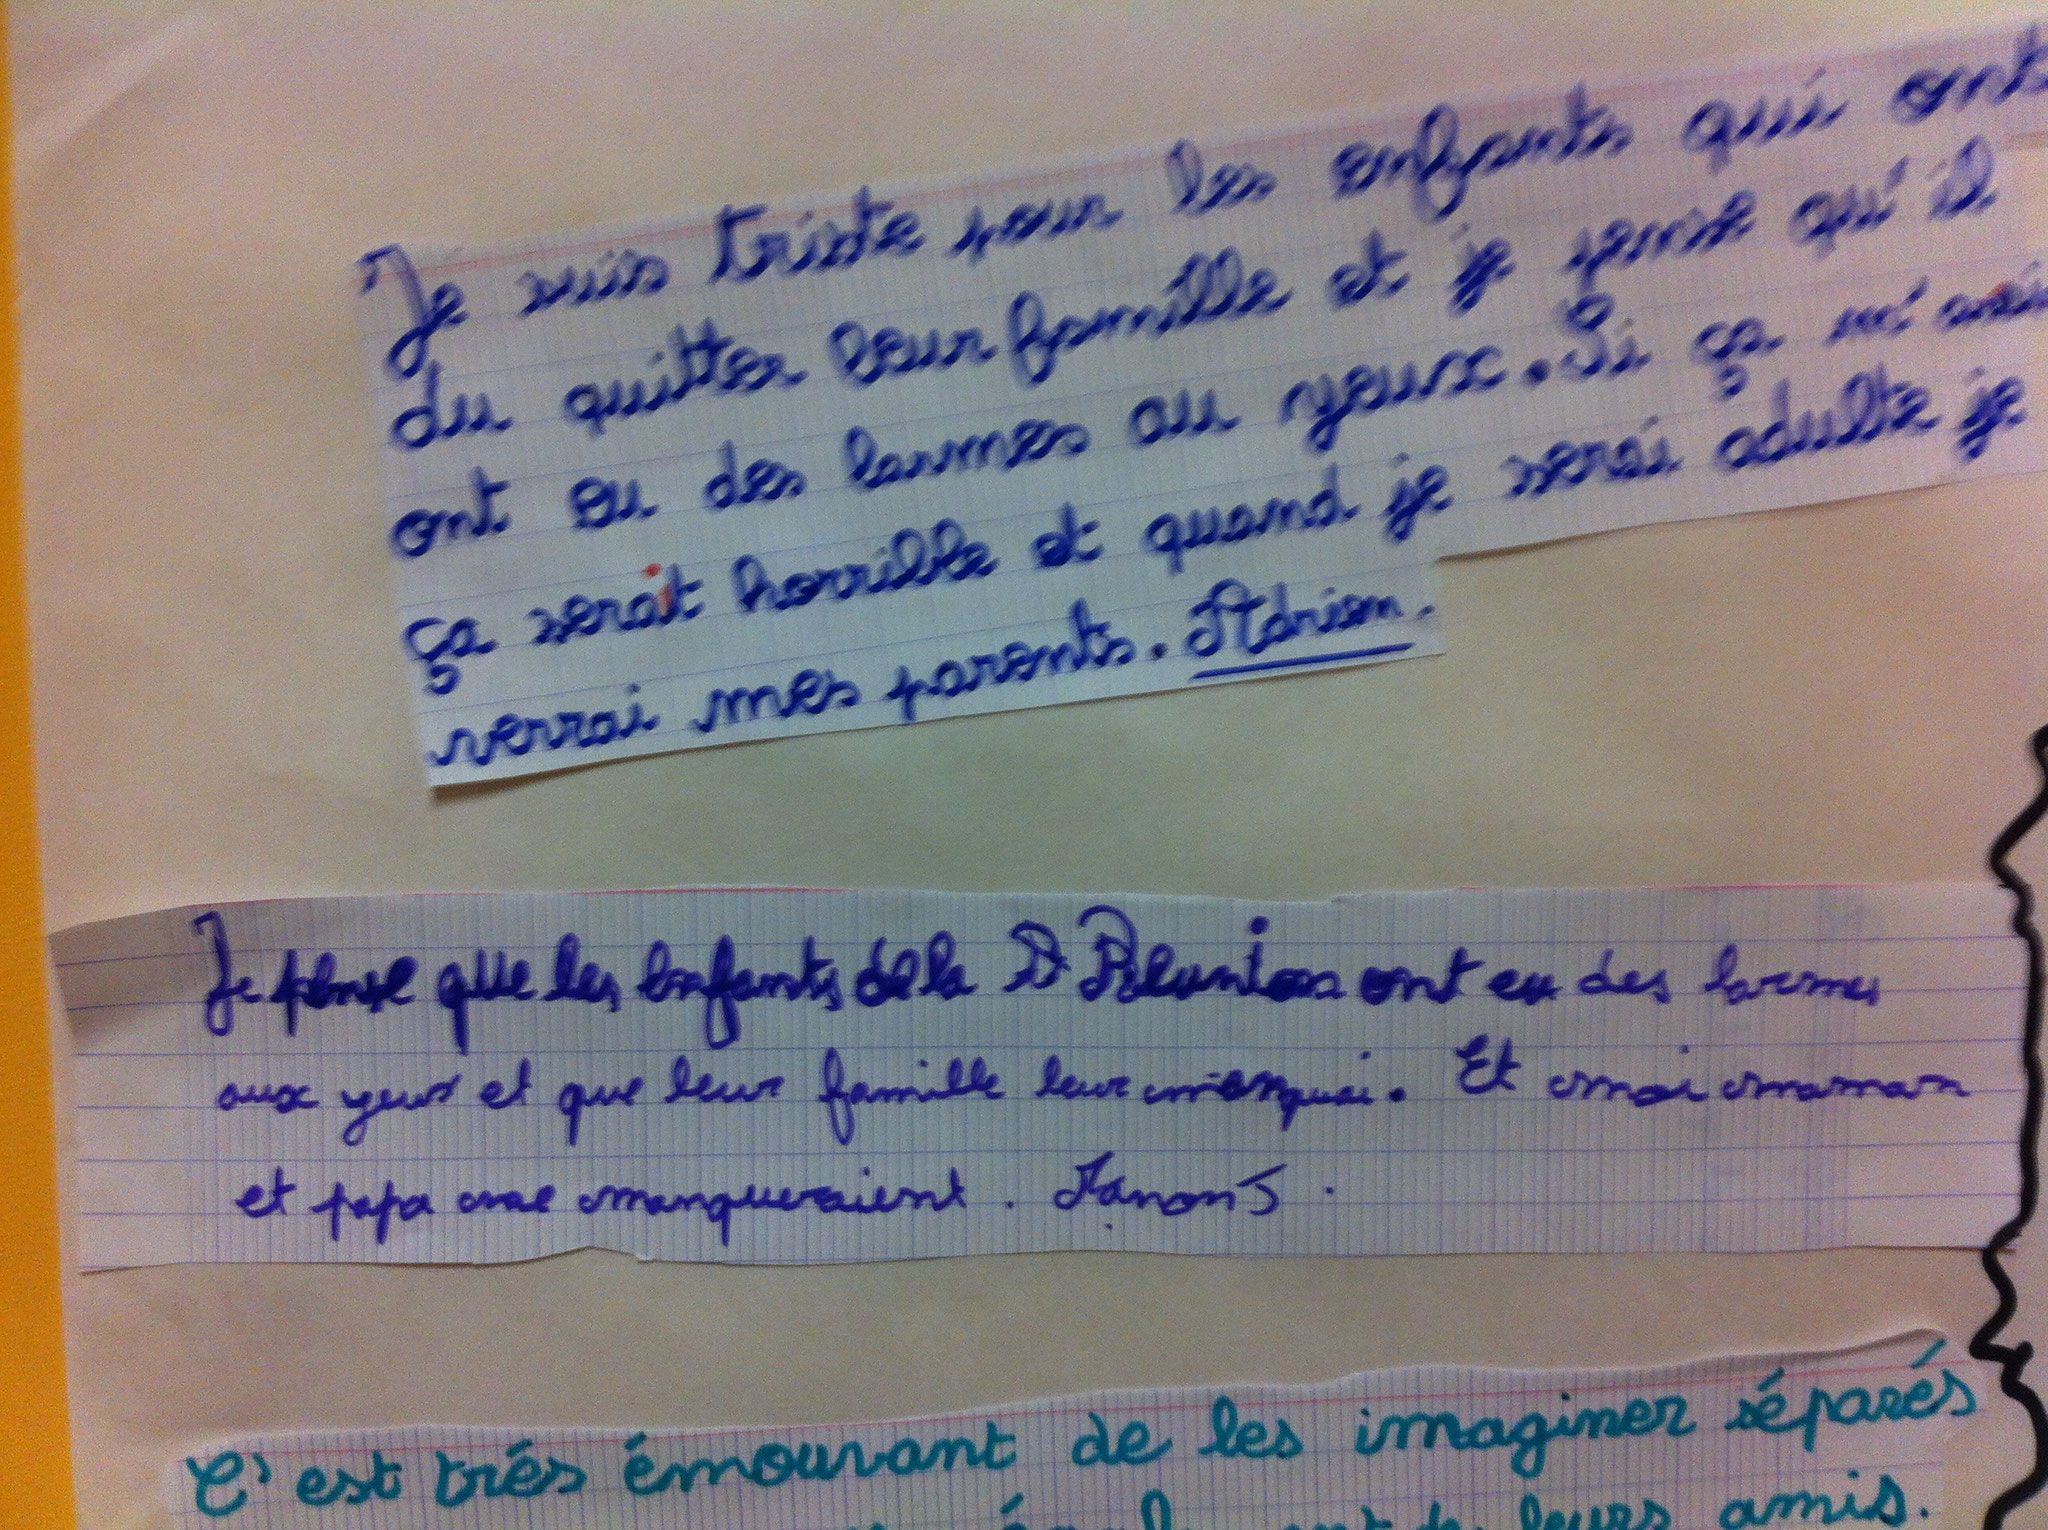 Je suis triste pour les enfants qui ont
du quitter leur famille et je pense qu'il
ont eu des larmes au yeux. Si ça m'
ça serait horrible et quand je serai adulte je
verrai mes parents. Adrien.
Je pense que les enfants de la Réunion ont eu des larmes
aux yeux et que leur famille leur manquai. Et moi maman
et papa me manqueraient.
C'est trés émouvant de les imaginer séparés
de leurs amis.